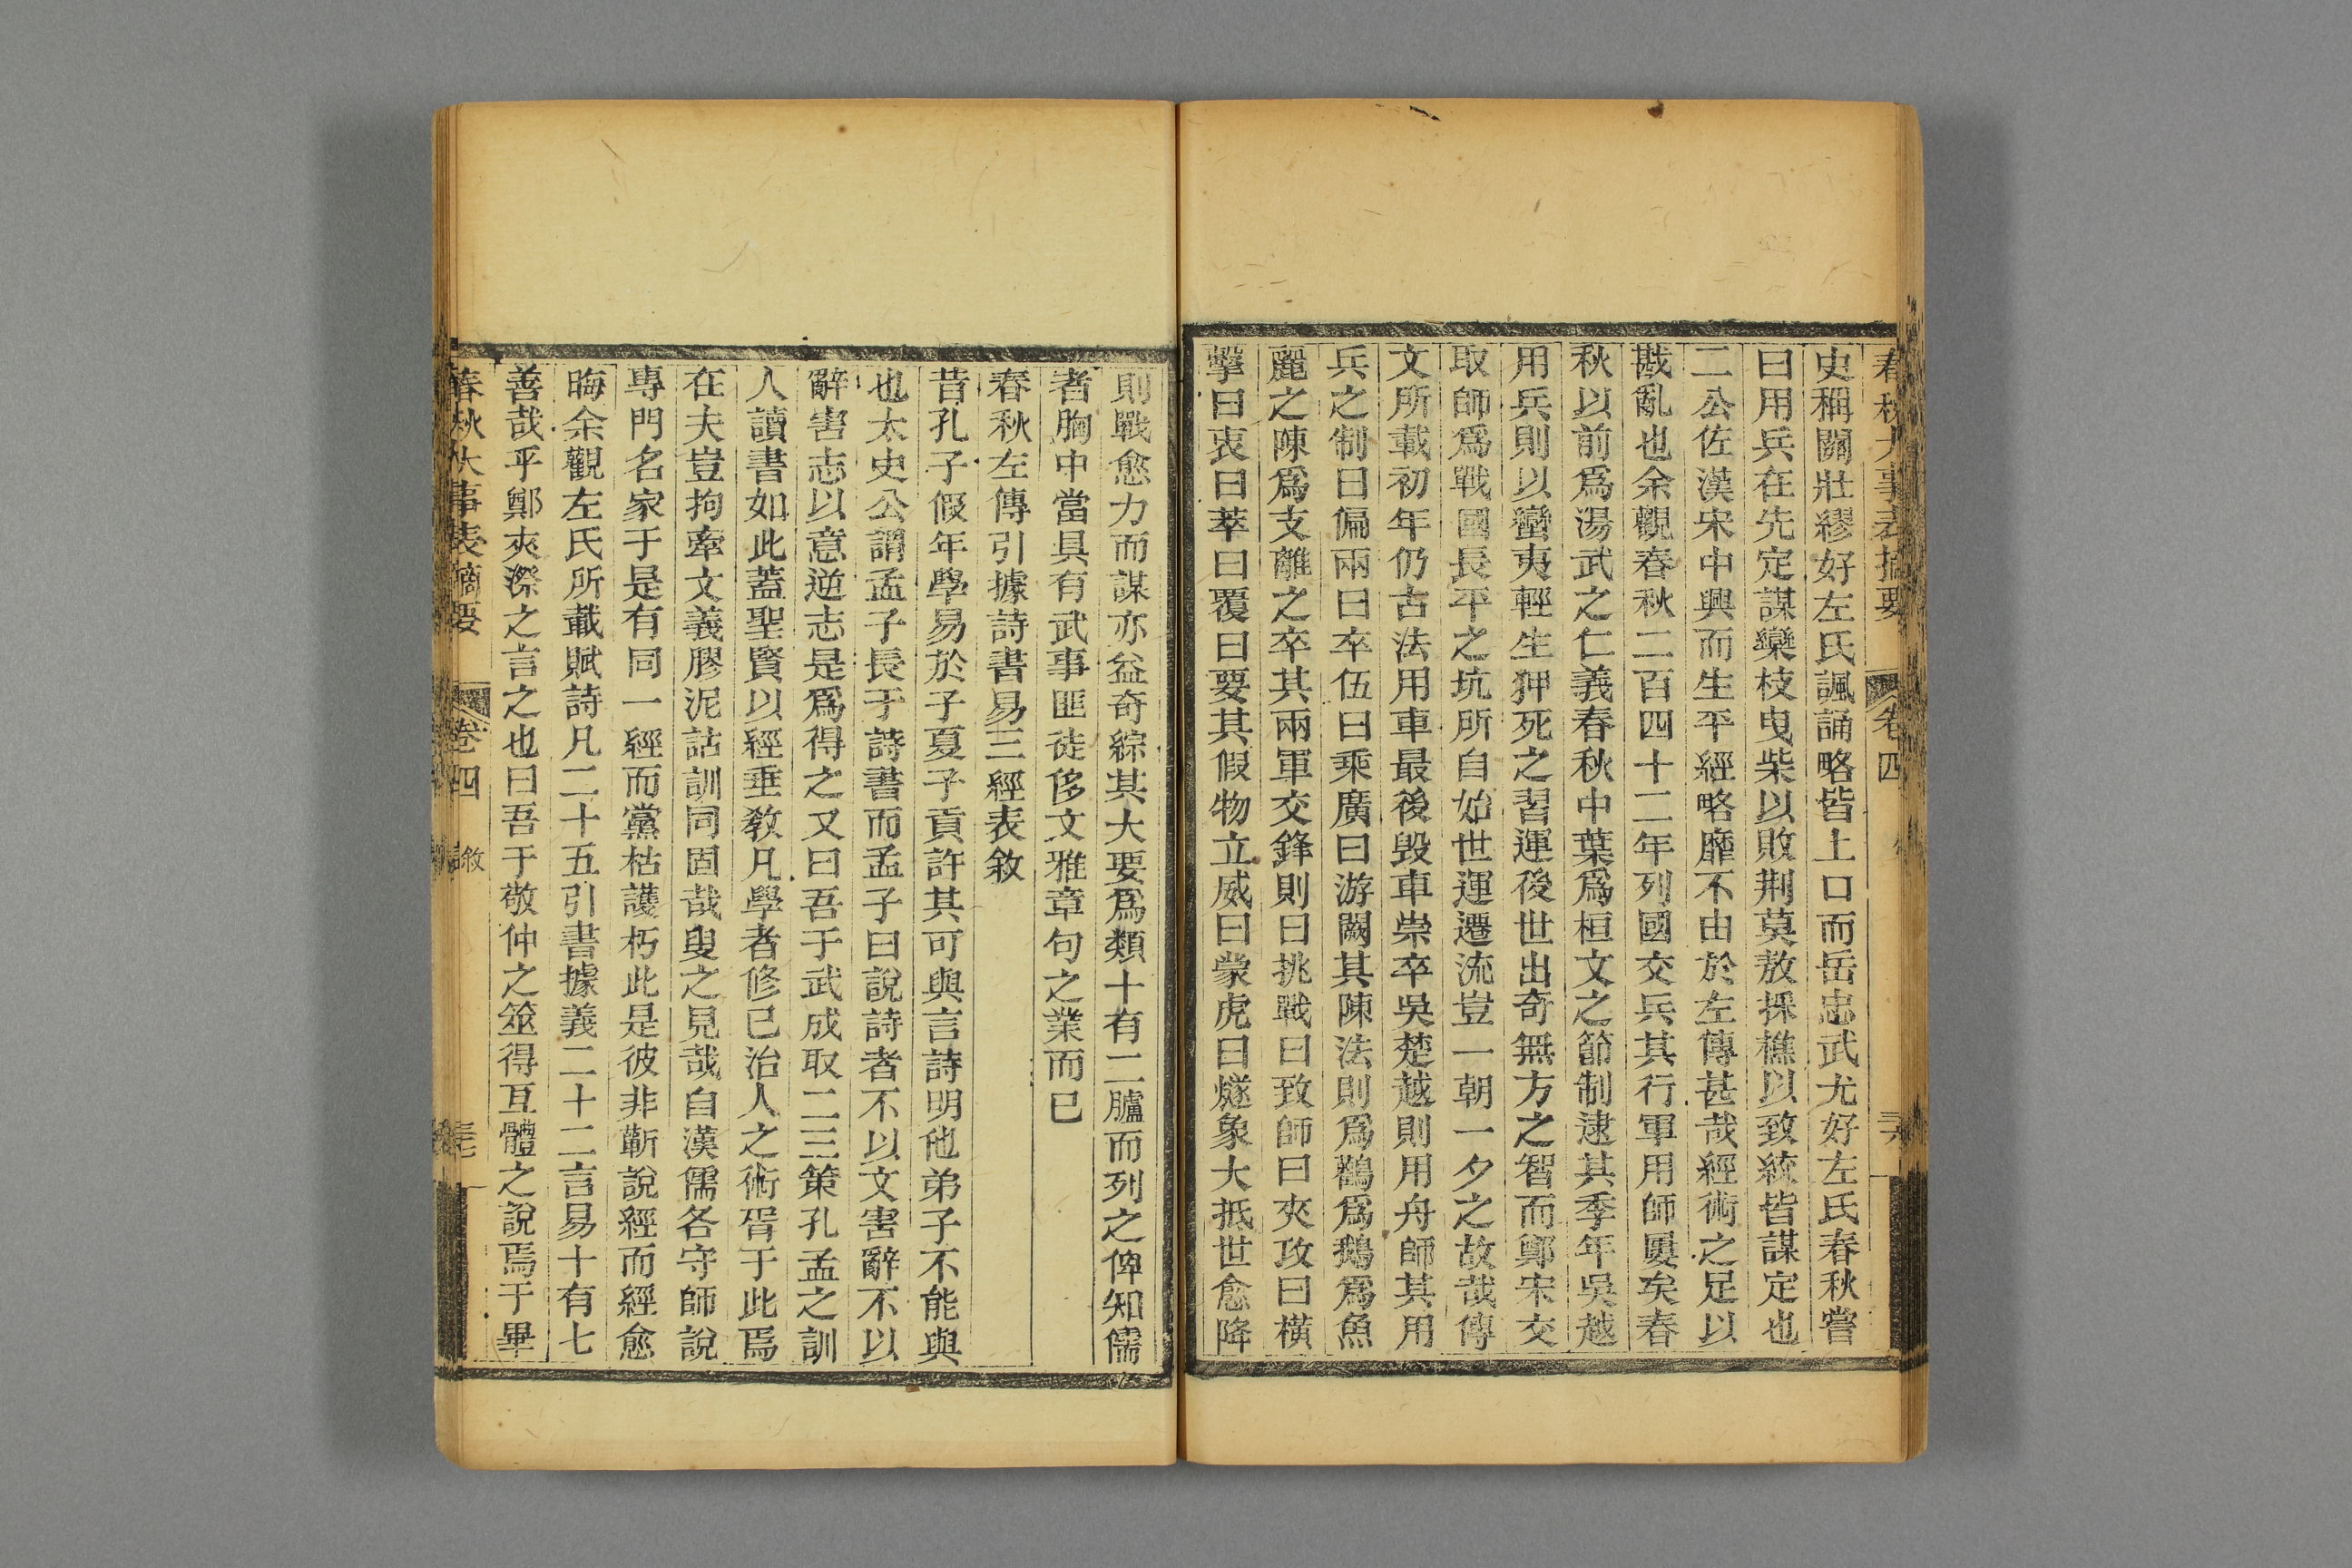 春秋大事表摘要 卷四 三六
史稱關壯繆好左氏諷誦略皆上口而岳忠武尤好左氏春秋嘗
曰用兵在先定謀欒枝曳柴以敗荆莫敖採樵以致絞皆謀定也
二公佐漢宋中興而生平經略靡不由於左傳甚哉經術之足以
戡亂也余觀春秋二百四十二年列國交兵其行軍用師屢矣春
秋以前爲湯武之仁義春秋中葉爲桓文之節制逮其季年吳越
用兵則以蠻夷輕生狎死之習運後世出奇無方之智而鄭宋交
取師爲戰國長平之坑所自始世運遷流豈一朝一夕之故哉傳
文所載初年仍古法用車最後毀車崇卒吳楚越則用舟師其用
兵之制曰偏兩曰卒伍曰乘廣曰游闕其陳法則爲鸛爲鵝爲魚
麗之陳爲支離之卒其兩軍交鋒則曰挑戰曰致師曰夾攻曰橫
擊曰衷曰萃曰覆曰要其假物立威曰蒙虎曰燧象大抵世愈降
則戰愈力而謀亦益奇綜其大要爲類十有二臚而列之俾知儒
者胸中當具有武事匪徒侈文雅章句之業而已
春秋左傳引據詩書易三經表敘
昔孔子假年學易於子夏子貢許其可與言詩明他弟子不能與
也太史公謂孟子長于詩書而孟子曰說詩者不以文害辭不以
辭害志以意逆志是爲得之又曰吾于武成取二三策孔孟之訓
人讀書如此蓋聖賢以經垂敎凡學者修己治人之術胥于此焉
在夫豈拘牽文義膠泥詁訓同固哉叟之見哉自漢儒各守師說
專門名家于是有同一經而黨枯護朽此是彼非蘄說經而經愈
晦余觀左氏所載賦詩凡二十五引書據義二十二言易十有七
善哉乎鄭夾漈之言之也曰吾于敬仲之筮得互體之說焉于畢
春秋大事表摘要 卷四 敘 三七